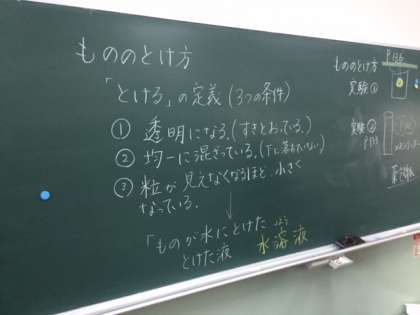 もののとけ方
「とける」の定義(3つの条件)
① 透明になる。(すきとおっている。)
② 均一に混ざっている。(下に落ちていない)
③ 粒が見えなくなるほど小さく
なっている。
↓
「ものが水にとけた
とけた液
よう
水溶液
P.136
もののとけ方
実験①
実験②